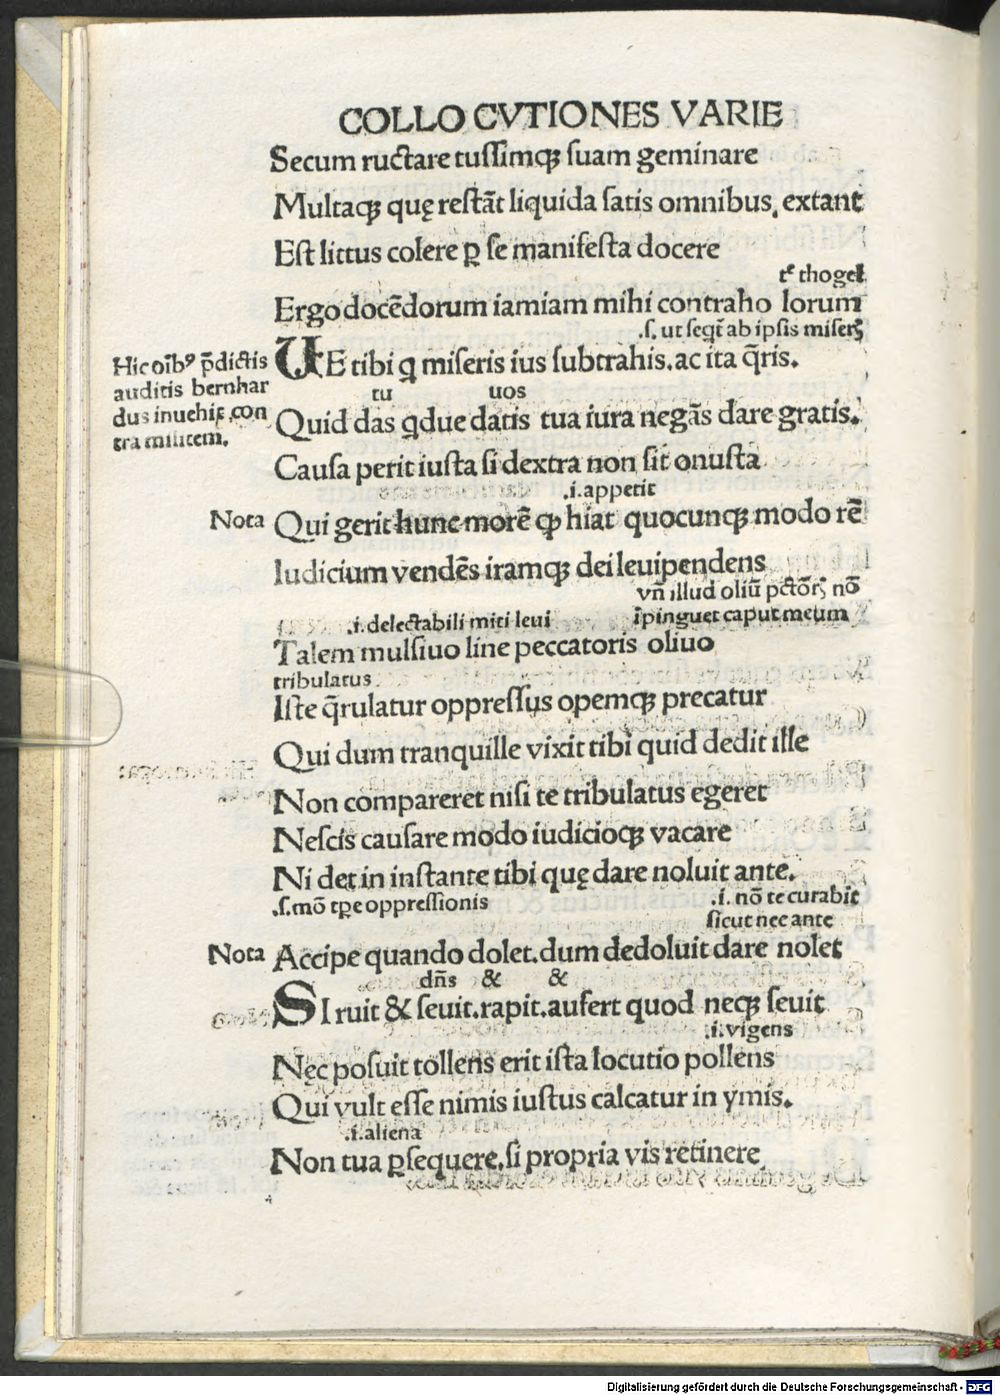 COLLO CVTIONES VARIE
Secum ructare tussimqꝫ suam geminare
Multaqꝫ quę restāt liquida satis omnibus, extant
Est littus colere ꝑ se manifesta docere
tᵉ thogel
Ergo docēdorum iamiam mihi contraho lorum
.s. ut seqt̄ ab ipsis miserꝝ
VE tibi q miseris ius subtrahis.ac ita q̄ris.
Hic oīb⁹ p̄dictis
auditis bernhar
dus inuehit̄ con
tra militem.
tu uos
Quid das qdue datis tua iura negās dare gratis.
Causa perit iusta si dextra non sit onusta
.i.appetit
Nota Qui gerit hunc morē ꝙ hiat quocunqꝫ modo rē
Iudicium vendēs iramqꝫ dei leuipendens
vn̄ illud oliū pctōrꝝ nō
.i.delectabili miti leui īpinguet caput meum
Talem mulsiuo line peccatoris oliuo
tribulatus
Iste q̄rulatur oppressus opemqꝫ precatur
Qui dum tranquille vixit tibi quid dedit ille
Non compareret nisi te tribulatus egeret
Nescis causare modo iudicioqꝫ vacare
Ni det in instante tibi quę dare noluit ante.
.s.mō tꝑe oppressionis .i. nō te curabit
sicut nec ante
Nota Accipe quando dolet.dum dedoluit dare nolet
dn̄s & &
SI ruit & seuit.rapit.aufert quod neqꝫ seuit
.i.vigens
Nęc posuit tollens erit ista locutio pollens
Qui vult esse nimis iustus calcatur in ymis.
.i.aliena
Non tua ꝑsequere,si propria vis retinere
Digitalisierung gefördert durch die Deutsche Forschungsgemeinschaft - DFG